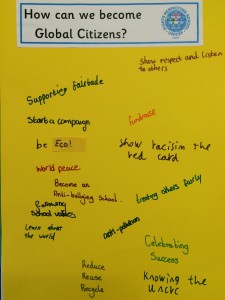 How can we become
Global Citizens?
Show respect and listen
to others
Supporting fairtrade
fundraise
Start a campaign
be Eco!
Show racisim the
red card
World peace
Become an
Anti-bullying School.
treating others fairly
Following
School values
Learn about
the world
anti-pollution
Celebrating
Success
Reduce
Reuse
Recycle
Knowing the
UNCRC